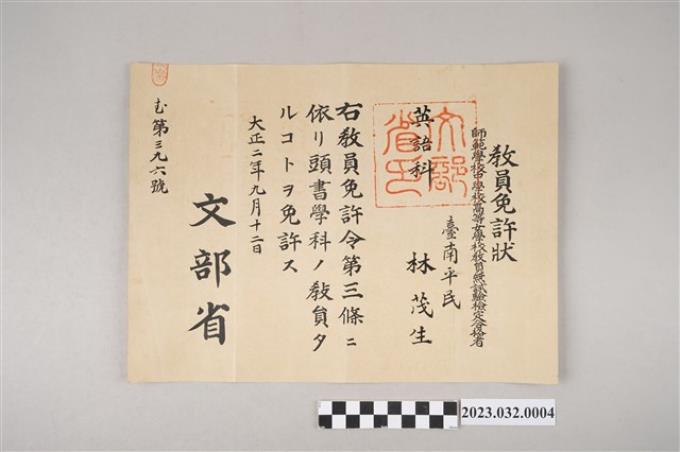 教員免許状
師範學校中學校高等女學校教員無試驗檢定合格者
臺南平民
林茂生
英語科
文部省印
右教員免許令第三條ニ
依リ頭書學科ノ教員タ
ルコトヲ免許ス
大正二年九月十二日
文部省
む第三九六號
2023.032.0004